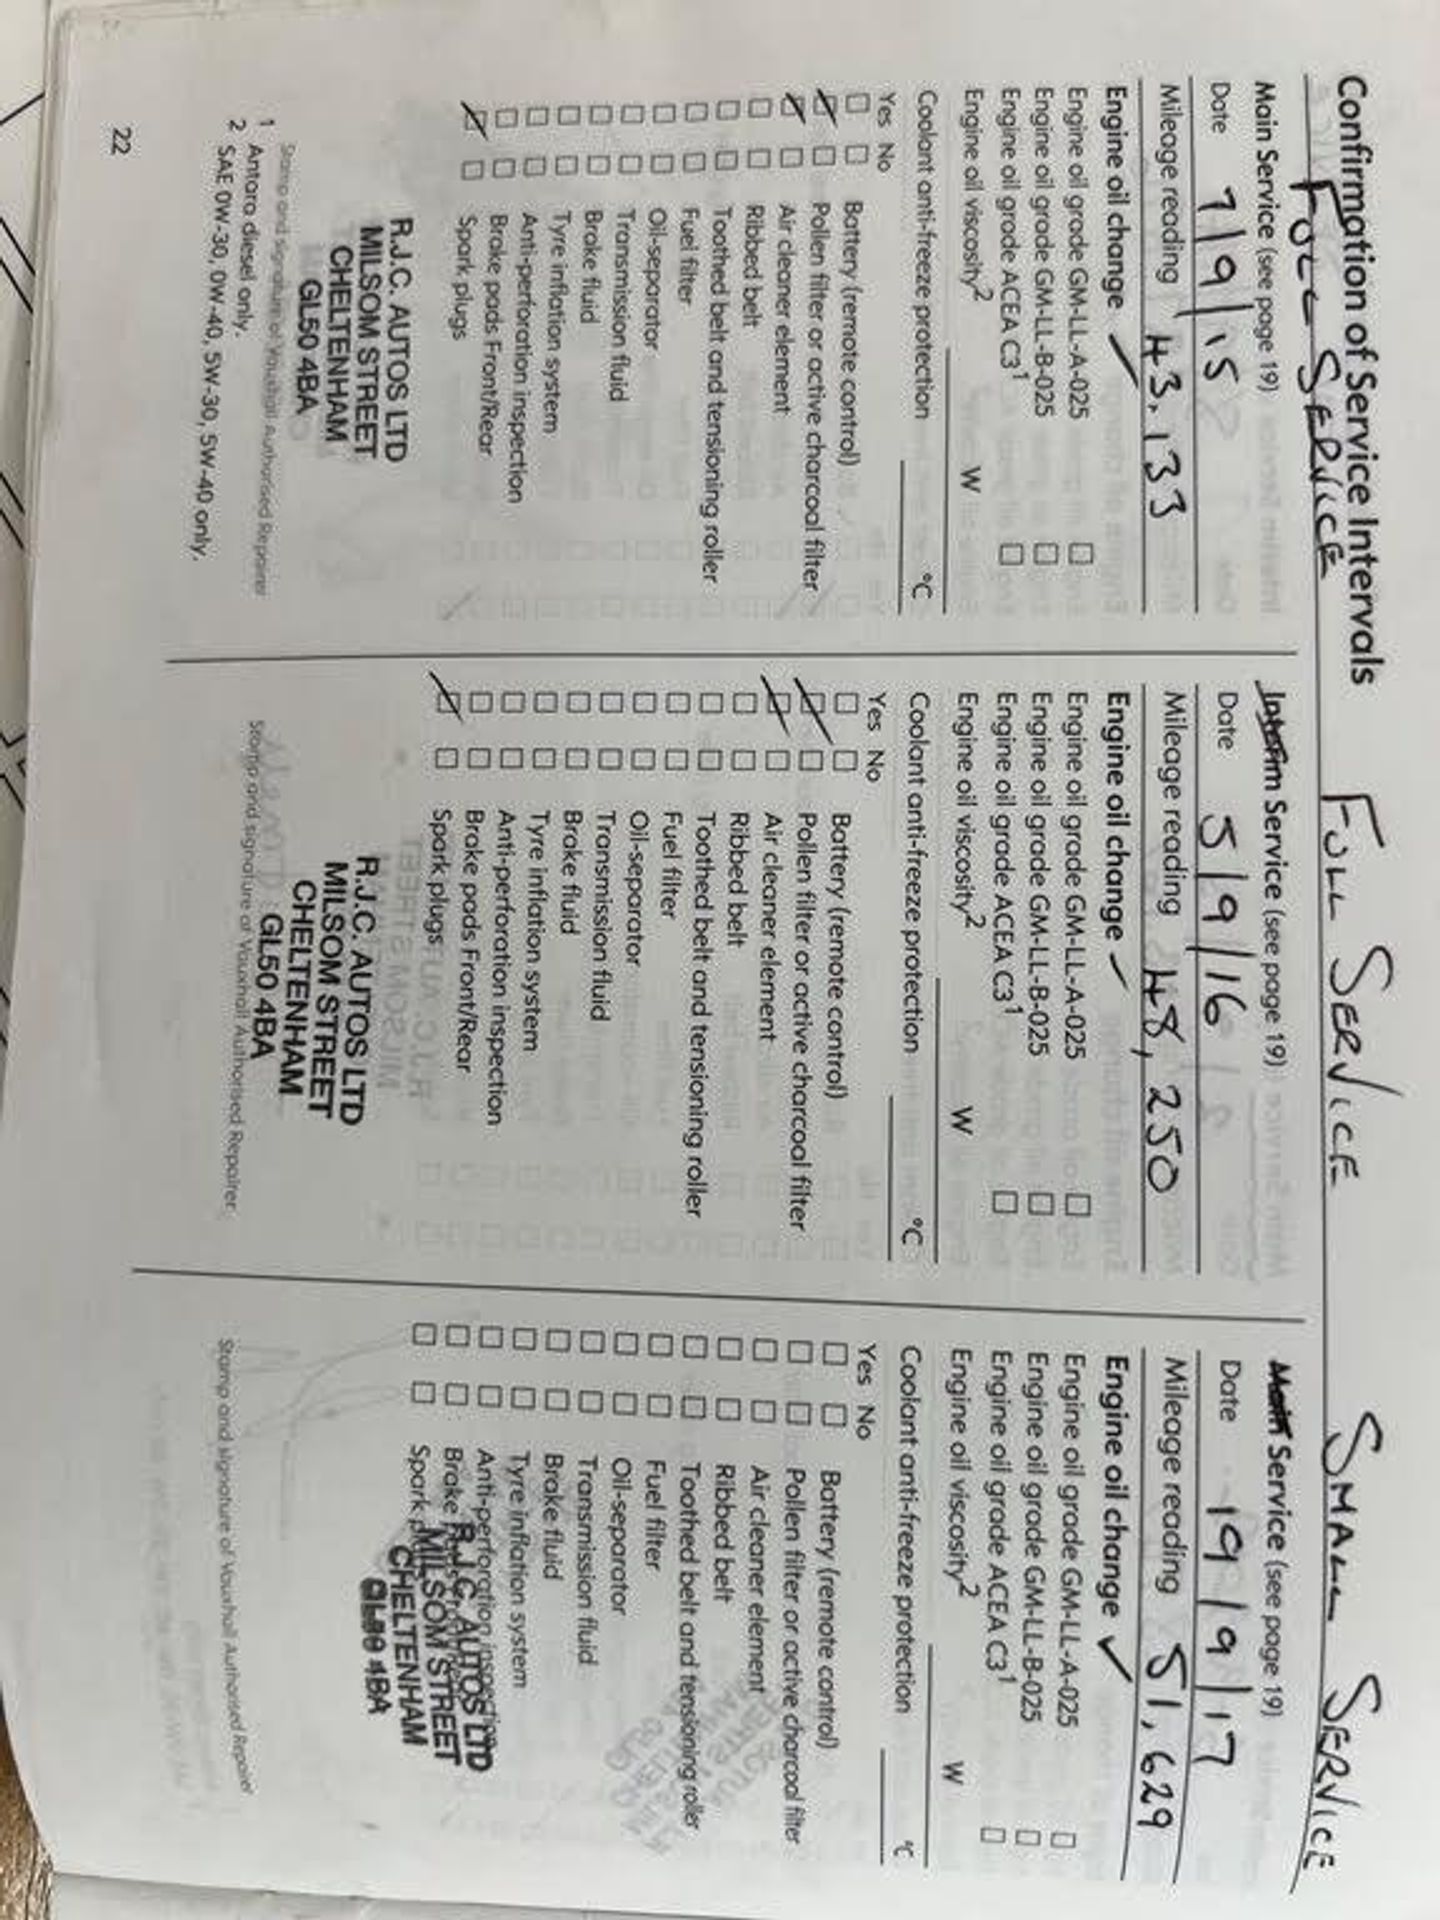 Confirmation of Service Intervals
FULL SERVICE
Main Service (see page 19)
Date 7/9/15
Mileage reading 43.133
Engine oil change ✓
Engine oil grade GM-LL-A-025 ☐
Engine oil grade GM-LL-B-025 ☐
Engine oil grade ACEA C3¹ ☐
Engine oil viscosity² W
Coolant anti-freeze protection °C
Yes No
Battery (remote control)
Pollen filter or active charcoal filter
Air cleaner element
Ribbed belt
Toothed belt and tensioning roller
Fuel filter
Oil-separator
Transmission fluid
Brake fluid
Tyre inflation system
Anti-perforation inspection
Brake pads Front/Rear
Spark plugs
R.J.C. AUTOS LTD
MILSOM STREET
CHELTENHAM
GL50 4BA
Stamp and signature of Vauxhall Authorised Repairer
1 Antara diesel only.
2 SAE 0W-30, 0W-40, 5W-30, 5W-40 only.
22
FULL SERVICE
Interim Service (see page 19)
Date 5/9/16
Mileage reading 48,250
Engine oil change ✓
Engine oil grade GM-LL-A-025 ☐
Engine oil grade GM-LL-B-025 ☐
Engine oil grade ACEA C3¹ ☐
Engine oil viscosity² W
Coolant anti-freeze protection °C
Yes No
Battery (remote control)
Pollen filter or active charcoal filter
Air cleaner element
Ribbed belt
Toothed belt and tensioning roller
Fuel filter
Oil-separator
Transmission fluid
Brake fluid
Tyre inflation system
Anti-perforation inspection
Brake pads Front/Rear
Spark plugs
R.J.C. AUTOS LTD
MILSOM STREET
CHELTENHAM
GL50 4BA
Stamp and signature of Vauxhall Authorised Repairer
SMALL SERVICE
Main Service (see page 19)
Date 19/9/17
Mileage reading 51,629
Engine oil change ✓
Engine oil grade GM-LL-A-025 ☐
Engine oil grade GM-LL-B-025 ☐
Engine oil grade ACEA C3¹ ☐
Engine oil viscosity² W
Coolant anti-freeze protection °C
Yes No
Battery (remote control)
Pollen filter or active charcoal filter
Air cleaner element
Ribbed belt
Toothed belt and tensioning roller
Fuel filter
Oil-separator
Transmission fluid
Brake fluid
Tyre inflation system
Anti-perforation inspection
Brake
Spark
R.J.C. AUTOS LTD
MILSOM STREET
CHELTENHAM
GL50 4BA
Stamp and signature of Vauxhall Authorised Repairer